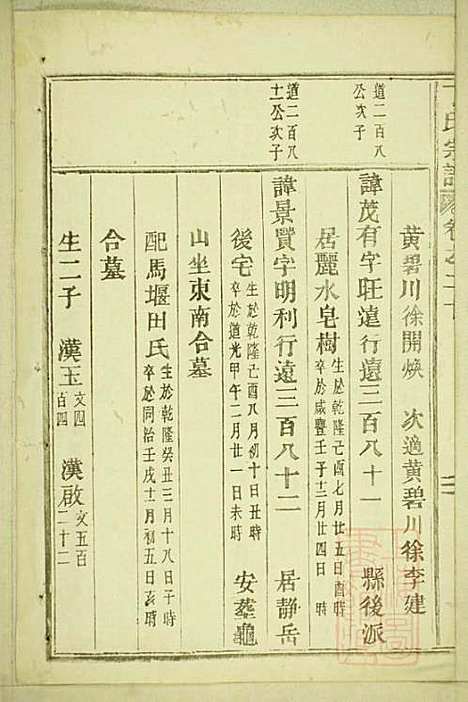 丁氏宗譜 卷之二十
黃碧川徐開煥 次適黃碧川徐李建
道二百八
公次子
諱茂有字旺遠行遠三百八十一 縣後派
居麗水皂樹 生於乾隆己酉七月廿五日酉時
卒於咸豐壬子十二月廿四日時
道二百八
十一公次子
諱景賢字明利行遠三百八十二 居靜岳
後宅 生於乾隆己酉八月初十日丑時
卒於道光甲午二月廿一日未時 安塟龜
山坐東南合墓
配馬堰田氏 生於乾隆癸丑三月十八日子時
卒於同治壬戌十二月初五日亥時
合墓
生二子 漢玉 文四
百四 漢啟 文五百
二十二